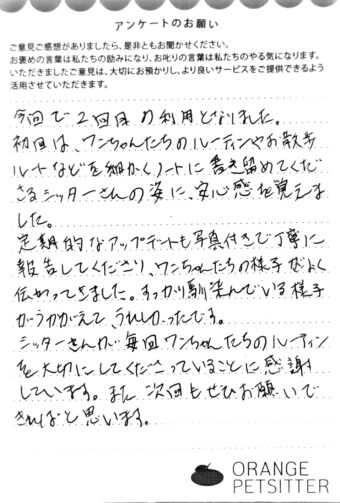 アンケートのお願い
ご意見ご感想がありましたら、是非ともお聞かせください。
お褒めの言葉は私たちの励みになり、お叱りの言葉は私たちのやる気になります。
いただきましたご意見は、大切にお預かりし、より良いサービスをご提供できるよう
活用させていただきます。
今回で2回目の利用となりました。
初回は、ワンちゃんたちのルーティンやお散歩
ルートなどを細かくノートに書き留めてくだ
さるシッターさんの姿に、安心感を覚えま
した。
定期的なアップデートも写真付きで丁寧に
報告してくださり、ワンちゃんたちの様子がよく
伝わってきました。すっかり馴染んでいる様子
がうかがえて、うれしかったです。
シッターさんが毎回ワンちゃんたちのルーティン
を大切にしてくださっていることに感謝
しています。また次回もぜひお願いで
きればと思います。
ORANGE
PETSITTER